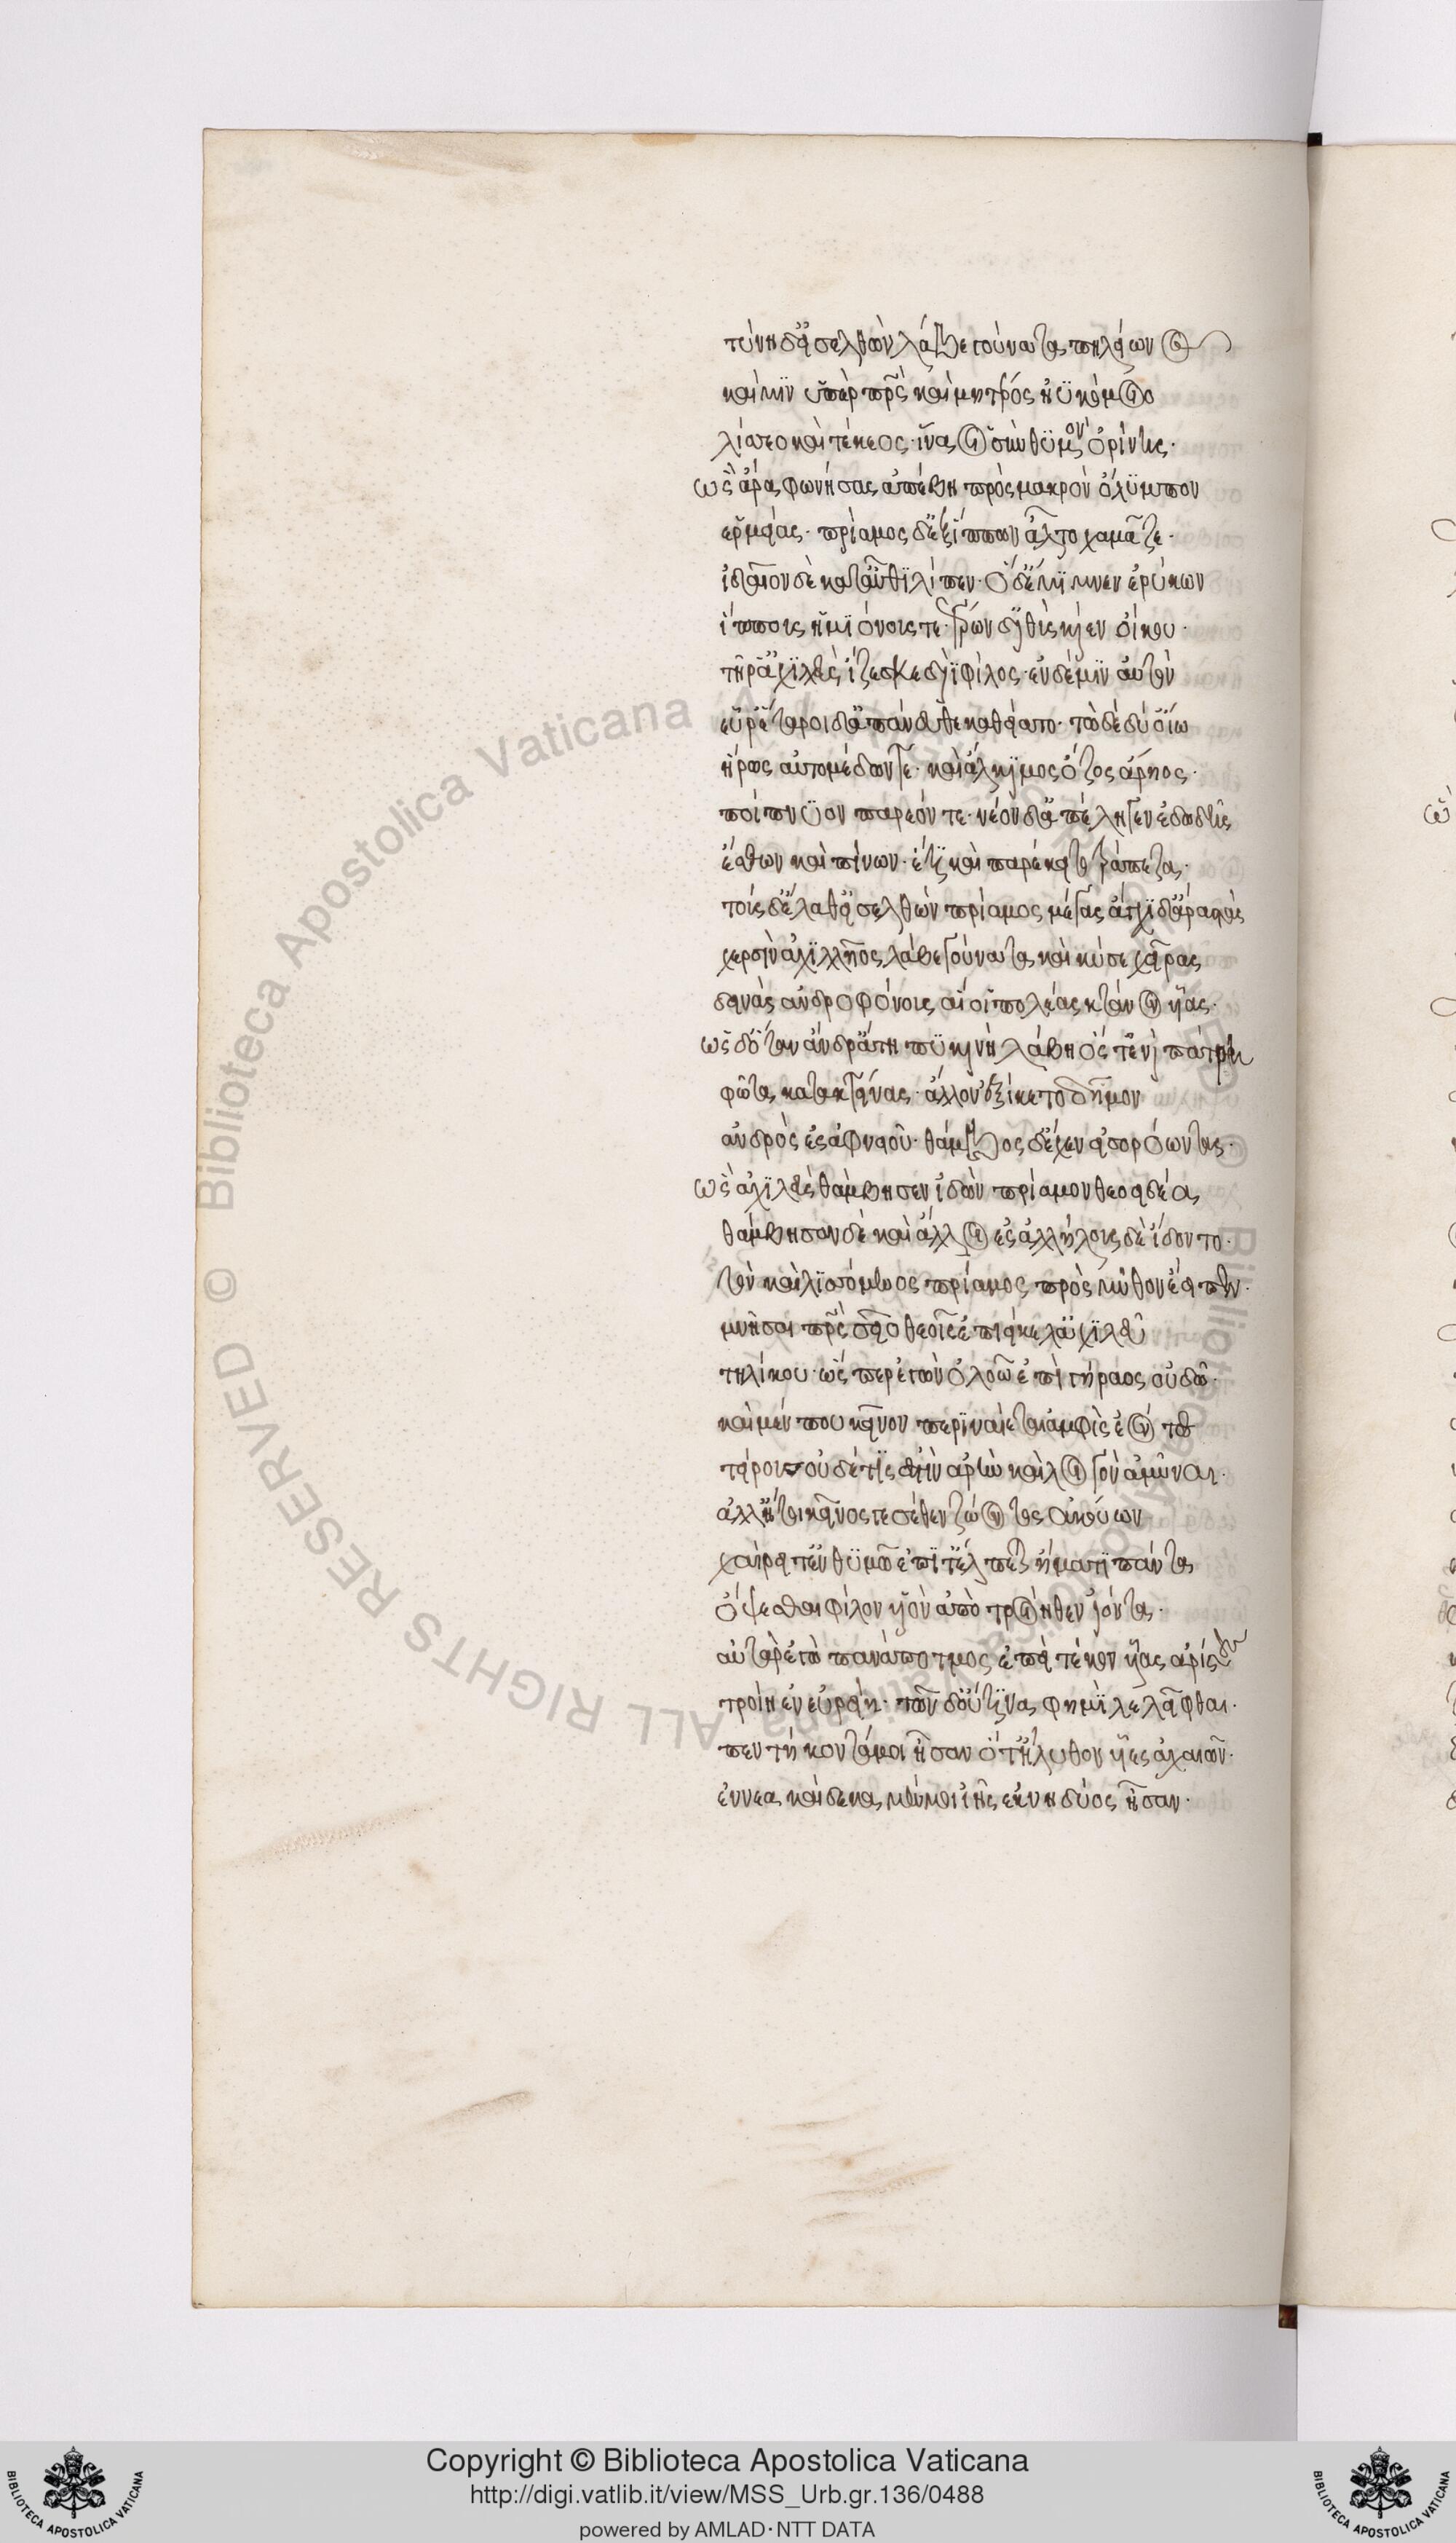 τύνη δ' εἰσελθὼν λάβε γούνατα πηλείωνος
καί μιν ὑπὲρ πατρὸς καὶ μητρός ἠϋκόμοιο
λίσσεο καὶ τέκεος· ἵνα οἱ σὺν θυμὸν ὀρίνῃς·
ὣς ἄρα φωνήσας ἀπέβη πρὸς μακρὸν ὄλυμπον
ἑρμείας· πρίαμος δ' ἐξ ἵππων ἆλτο χαμᾶζε·
ἰδαῖον δὲ κατ' αὖθι λίπεν· ὃ δέ μίμνεν ἐρύκων
ἵππους ἡμιόνους τε· γέρων δ' ἰθὺς κίεν οἴκου·
τῇ ῥ' ἀχιλεὺς ἵζεσκε διῒ φίλος· ἐν δέ μιν αὐτὸν
εὗρ'· ἕταροι δ' ἀπάνευθε καθείατο· τὼ δὲ δύ' οἴω
ἥρως αὐτομέδων τέ· καὶ ἄλκιμος ὄζος ἄρηος·
ποίπνυον παρεόντε· νέον δ' ἀπέληγεν ἐδωδῆς
ἔσθων καὶ πίνων· ἔτι καὶ παρέκειτο τράπεζα·
τοὺς δ' ἔλαθ' εἰσελθὼν πρίαμος μέγας ἄγχι δ' ἄρα στὰς
χερσὶν ἀχιλλῆος λάβε γούνατα καὶ κύσε χεῖρας
δεινὰς ἀνδροφόνους, αἵ οἱ πολέας κτάνον υἷας·
ὡς δ' ὅταν ἄνδρ' ἄτη πυκινὴ λάβη ὅς τ' ἐνὶ πάτρῃ
φῶτα κατακτείνας· ἄλλον ἐξίκετο δῆμον
ἀνδρὸς ἐς ἀφνειοῦ· θάμβος δ' ἔχει εἰσορόωντας·
ὣς ἀχιλεὺς θάμβησεν ἰδὼν πρίαμον θεοειδέα
θάμβησαν δὲ καὶ ἄλλοι ἐς ἀλλήλους δὲ ἴδοντο·
τὸν καὶ λισσόμενος πρίαμος πρὸς μῦθον ἔειπεν·
μνῆσαι πατρὸς σεῖο θεοῖς ἐπιείκελ' ἀχιλεῦ
τηλίκου· ὥς περ ἐγὼν ὀλοῷ ἐπὶ γήραος οὐδῷ·
καὶ μέν που κεῖνον περὶ ναιέται ἀμφὶς ἐόντες
τείρουσ· οὐδέ τίς ἐστὶν ἀρὴν καὶ λοιγὸν ἀμῦναι·
ἀλλ' ἤτοι κεῖνος γε σέθεν ζώοντος ἀκούων
χαίρει τ' ἐν θυμῷ ἐπί τ' ἔλπεται ἤματα πάντα
ὄψεσθαι φίλον υἱὸν ἀπὸ τροίηθεν ἰόντα·
αὐτὰρ ἐγὼ πανάποτμος ἐπεὶ τέκον υἷας ἀρίστους
τροίῃ ἐν εὐρείῃ· τῶν δ' οὔτινα φημὶ λελεῖφθαι·
πεντήκοντά μοι ἦσαν ὅτ' ἤλυθον υἷες ἀχαιῶν·
ἐννεα καίδεκα μέν μοι ἰῆς ἐκ νηδύος ἦσαν·
Copyright © Biblioteca Apostolica Vaticana
http://digi.vatlib.it/view/MSS_Urb.gr.136/0488
powered by AMLAD·NTT DATA